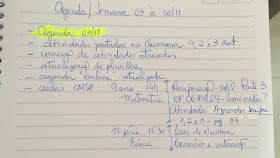 Agenda / Semana 03 à 06/11
- Agenda 03/11
- atividades postadas no Classroom 9, 2 e 3 mat
- correção de atividades atrasadas
- atualização de planilha
- agenda "online" atualizada
- aulas CMSP: 9 ano 14h
Matemática
Parte 3
EF09MA24 -
Atividades: Aprender
1, 2 e 3 - pg. 34
1ª série 15:30
Física
Leis de Newton
Exercícios e